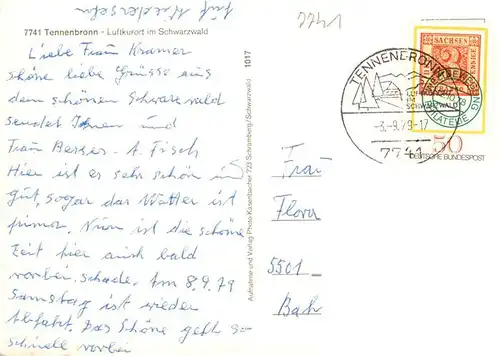 auf Wiedersehn
7741
7741 Tennenbronn - Luftkurort im Schwarzwald
Liebe Frau Kramer
schöne liebe Grüsse aus
dem schönen Schwarzwald
sendet Ihnen und
Frau Berger - A. Fisch
Hier ist es sehr schön u
gut, sogar das Wetter ist
prima. Nun ist die schöne
Zeit hier auch bald
vorbei, schade. Am 8.9.79
Samstag ist wieder
Abfahrt. Das Schöne geht so
schnell vorbei
1017
Aufnahme und Verlag Photo-Kasenbacher 723 Schramberg/Schwarzwald
TENNENBRONN
SCHWARZWALD
-3.-9.79-17
7741
SACHSEN
PHILATELIE
50
DEUTSCHE BUNDESPOST
Frau
Flora
5501
Bahr